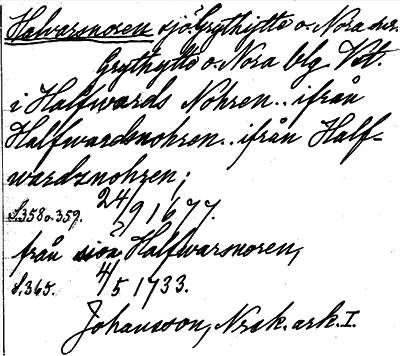 Halvarsnoren sjö. Grythytte o. Nora snr.
Grythytte o. Nora blg Vstm.
i Halfwards Nohren.. ifrån
Halfwardsnohren.. ifrån Half-
wardznohren;
S.358 o. 359. 24/9 1677.
från sjön Halfwarsnoren,
S.365. 4/5 1733.
Johansson, Nrsk. ark. I.